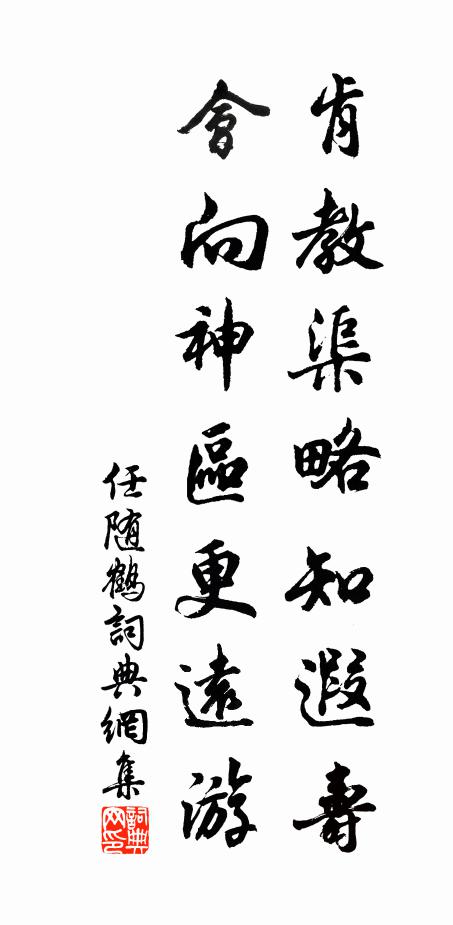 肯教渠略知遐壽
會向神區更遠游
任随鶴詞典網集
詞典
网印